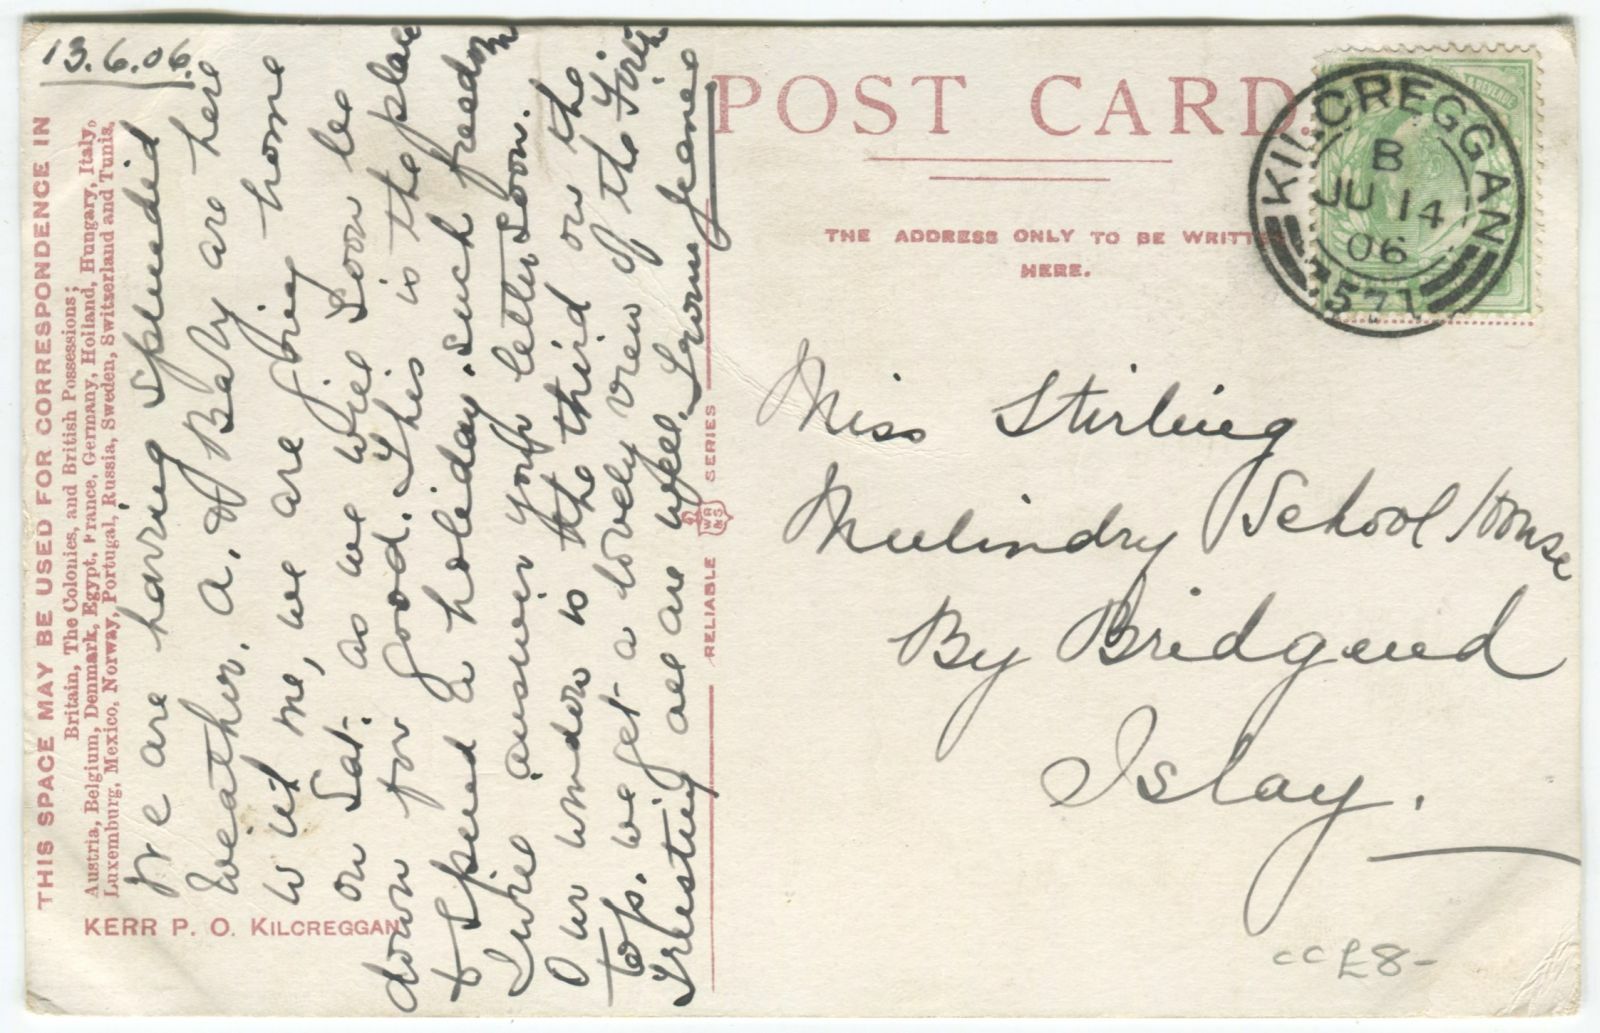 13.6.06.
THIS SPACE MAY BE USED FOR CORRESPONDENCE IN
Britain, The Colonies, and British Possessions;
Austria, Belgium, Denmark, Egypt, France, Germany, Holland, Hungary, Italy,
Luxemburg, Mexico, Norway, Portugal, Russia, Sweden, Switzerland and Tunis.
KERR P. O. KILCREGGAN
We are having splendid
weather. A. & Baby are here
with me, we are going home
on Sat. as we will soon be
down for good. This is the place
to spend a holiday, such freedom
I will answer your letter soon.
Our window is the third on the
top. we get a lovely view of the Firth
Trusting all are well. Love from Jeanie
RELIABLE WR&S SERIES
POST CARD.
THE ADDRESS ONLY TO BE WRITTEN
HERE.
KILCREGGAN
B
JU 14
06
571
Miss Stirling
Mulindry School House
By Bridgend
Islay.
cc £8-